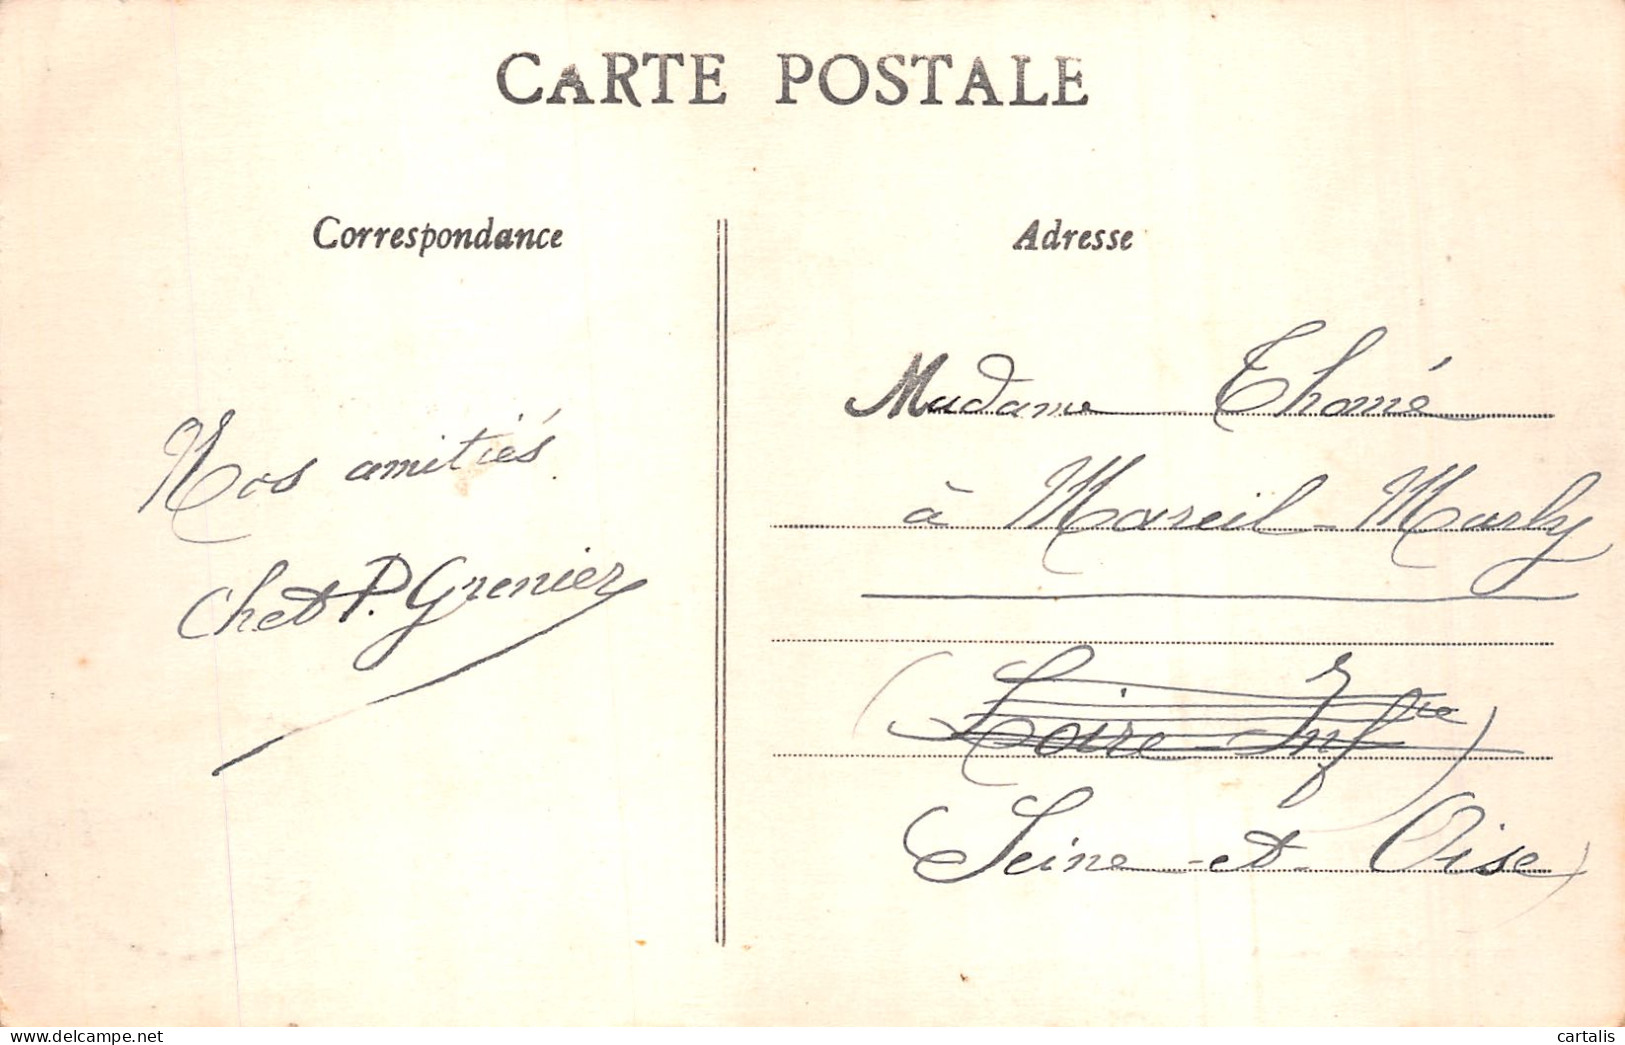 CARTE POSTALE
Correspondance
Nos amitiés
Ch et P. Grenier
Adresse
Madame Thomé
à Mareil-Marly
(Loire-Infre)
(Seine-et-Oise)
cartalis
www.delcampe.net